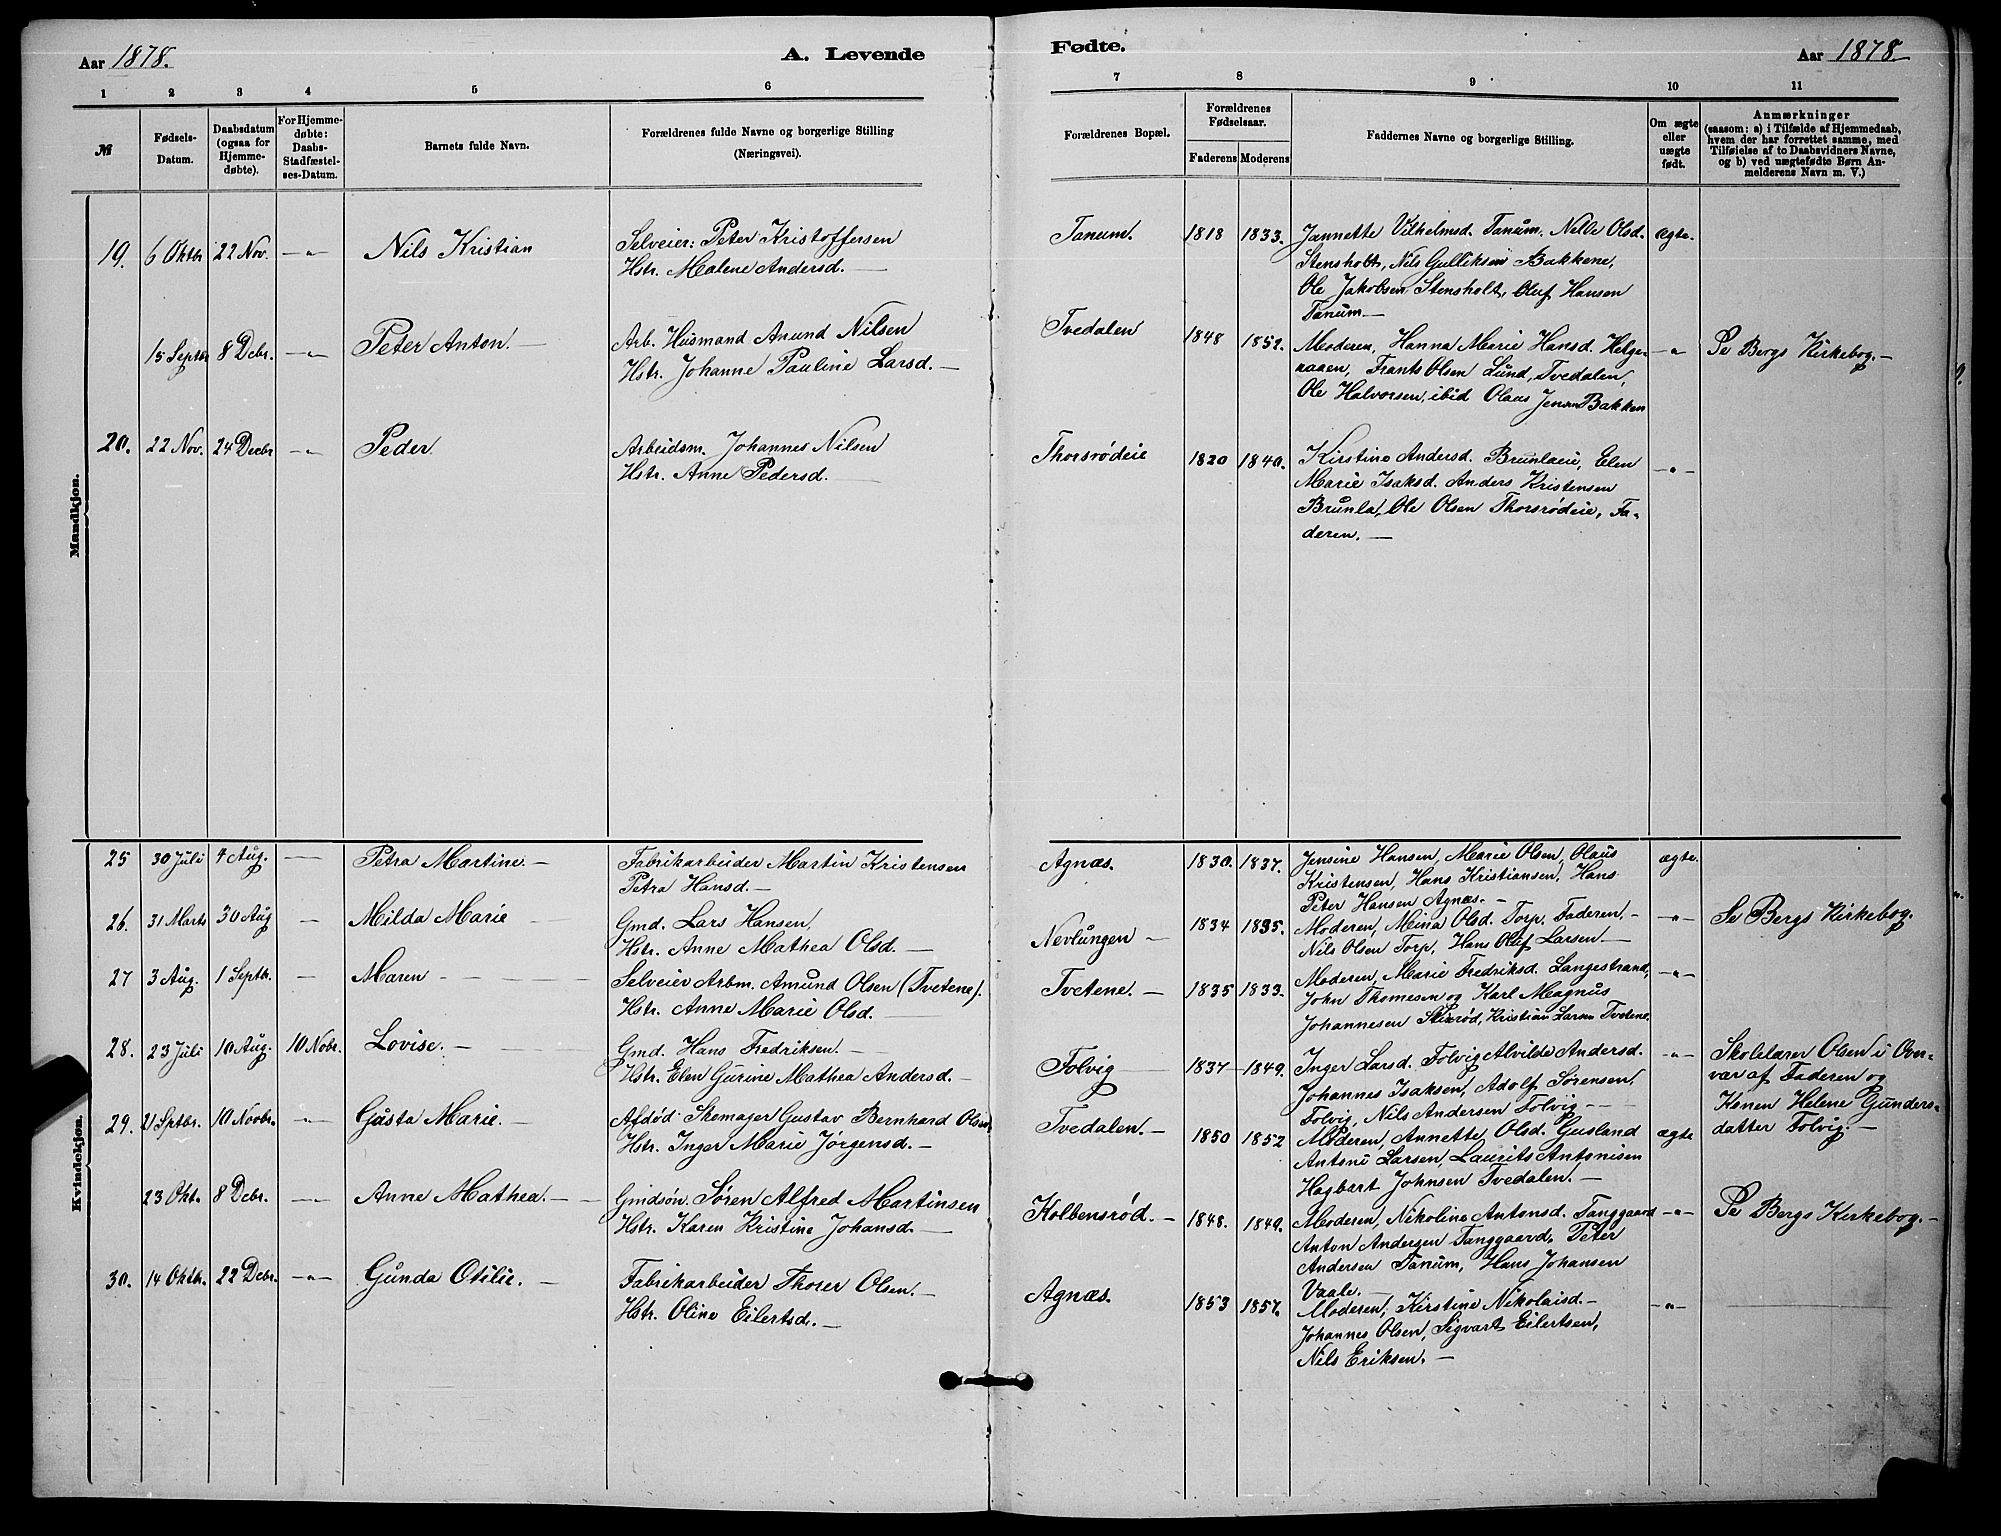 Aar 1878.
A. Levende
Fødte.
Aar 1878
1 2 3 4 5 6
7 8 9 10 11
№
Fødsels-Datum.
Daabsdatum (ogsaa for Hjemme-døbte).
For Hjemme-døbte: Daabs-Stadfæstel-ses-Datum.
Barnets fulde Navn.
Forældrenes fulde Navne og borgerlige Stilling
(Næringsvei).
Forældrenes Bopæl.
Forældrenes Fødselsaar.
Faderens Moderens
Faddernes Navne og borgerlige Stilling.
Om ægte eller uægte født.
Anmærkninger
(saasom: a) i Tilfælde af Hjemmedaab,
hvem der har forrettet samme, med
Tilføielse af to Daabsvidners Navne,
og b) ved uægtefødte Børn An-
melderens Navn m. V.)
Mandkjøn.
19. 6 Oktbr 22 Nov. —„— Nils Kristian
Selveier: Peter Kristoffersen
Hstr. Malene Andersd. —
Tanum. 1818 1833.
Jannette Vilhelmsd. Tanum, Nille Olsd. ægte.
Stensholt, Nils Gulliksen Bakkene,
Ole Jakobsen Stensholt, Oluf Hansen
Tanum. —
15 Septbr 8 Debr. —„— Peter Anton. —
Arb. Husmand Anund Nilsen
Hstr. Johanne Pauline Larsd. —
Tvedalen 1848 1852.
Moderen, Hanna Marie Hansd. Helge- —„
raaen, Frants Olsen Lund, Tvedalen,
Ole Halvorsen, ibid Olaus Jensen Bakken
Se Bergs Kirkebog. —
20. 22 Nov. 24 Decbr —„— Peder.
Arbeidsm. Johannes Nilsen
Hstr. Anne Pedersd. —
Thorsrødeie 1820 1840.
Kirstine Andersd. Brunlaeie, Elen —„—
Marie Isaksd. Anders Kristensen
Brunla, Ole Olsen Thorsrødeie, Fa-
deren. —
Kvindekjøn.
25 30 Juli 4 Aug. — Petra Martine. —
Fabrikarbeider Martin Kristensen
Petra Hansd. —
Agnæs. 1830. 1837.
Jensine Hansen, Marie Olsen, Olaus ægte.
Kristensen, Hans Kristiansen, Hans
Peter Hansen Agnæs. —
26. 31 Marts 30 Aug — Milda Marie —
Gmd. Lars Hansen,
Hstr. Anne Mathea Olsd. —
Nevlungen — 1834 1835.
Moderen, Mina Olsd. Torp, Faderen, — —„—
Nils Olsen Torp, Hans Oluf Larsen —
Se Bergs Kirkebog.
27 3 Aug. 1 Septbr. — Maren —
Selveier Arbm. Amund Olsen (Tvetene).
Hstr. Anne Marie Olsd. —
Tvetene. — 1835 1833.
Moderen, Marie Fredriksd. Langestrand, —„—
John Thomesen og Karl Magnus
Johannesen, Kristian Larsen Tvetene.
28. 23 Juli 10 Aug. 10 Nobr. Lovise. —
Gmd. Hans Fredriksen. —
Hstr. Elen Gurine Mathea Andersd. —
Folvig — 1837 — 1849.
Inger Larsd. Folvig Alvilde Andersd. —„—
Johannes Isaksen, Adolf Sørensen,
Folvig, Nils Andersen Folvig —
Skolelærer Olsen i Over-
vær af Faderen og
Konen Helene Gunders-
datter Folvig. —
29. 21 Sptbr. 10 Novbr. —„— Gusta Marie. —
Afdød Skomager Gustav Bernhard Olsen
Hstr. Inger Marie Jørgensd. —
Tvedalen. — 1850 1852
Moderen, Annette Olsd. Gusland ægte
Antoni Larsen, Laurits Antonisen
Hagbart Johnsen Tvedalen. —
23 Okt. 8 Debr. —„— Anne Mathea. —
Gmdsøn. Søren Alfred Martinsen
Hstr. Karen Kristine Johansd. —
Kolbensrød. — 1848. 1849.
Moderen, Nikoline Antonsd. Tanggaard —„—
Anton Andersen Tanggaard, Peter
Andersen Tanum, Hans Johansen
Vaale. —
Se Bergs Kirkebog. —
30. 14 Oktbr. 22 Debr. —„— Gunda Otilie. —
Fabrikarbeider Thorer Olsen. —
Hstr. Oline Eilertsd. —
Agnæs. 1853 1857.
Moderen, Kirstine Nikolaisd. — —„—
Johannes Olsen, Sigvart Eilertsen,
Nils Eriksen. —